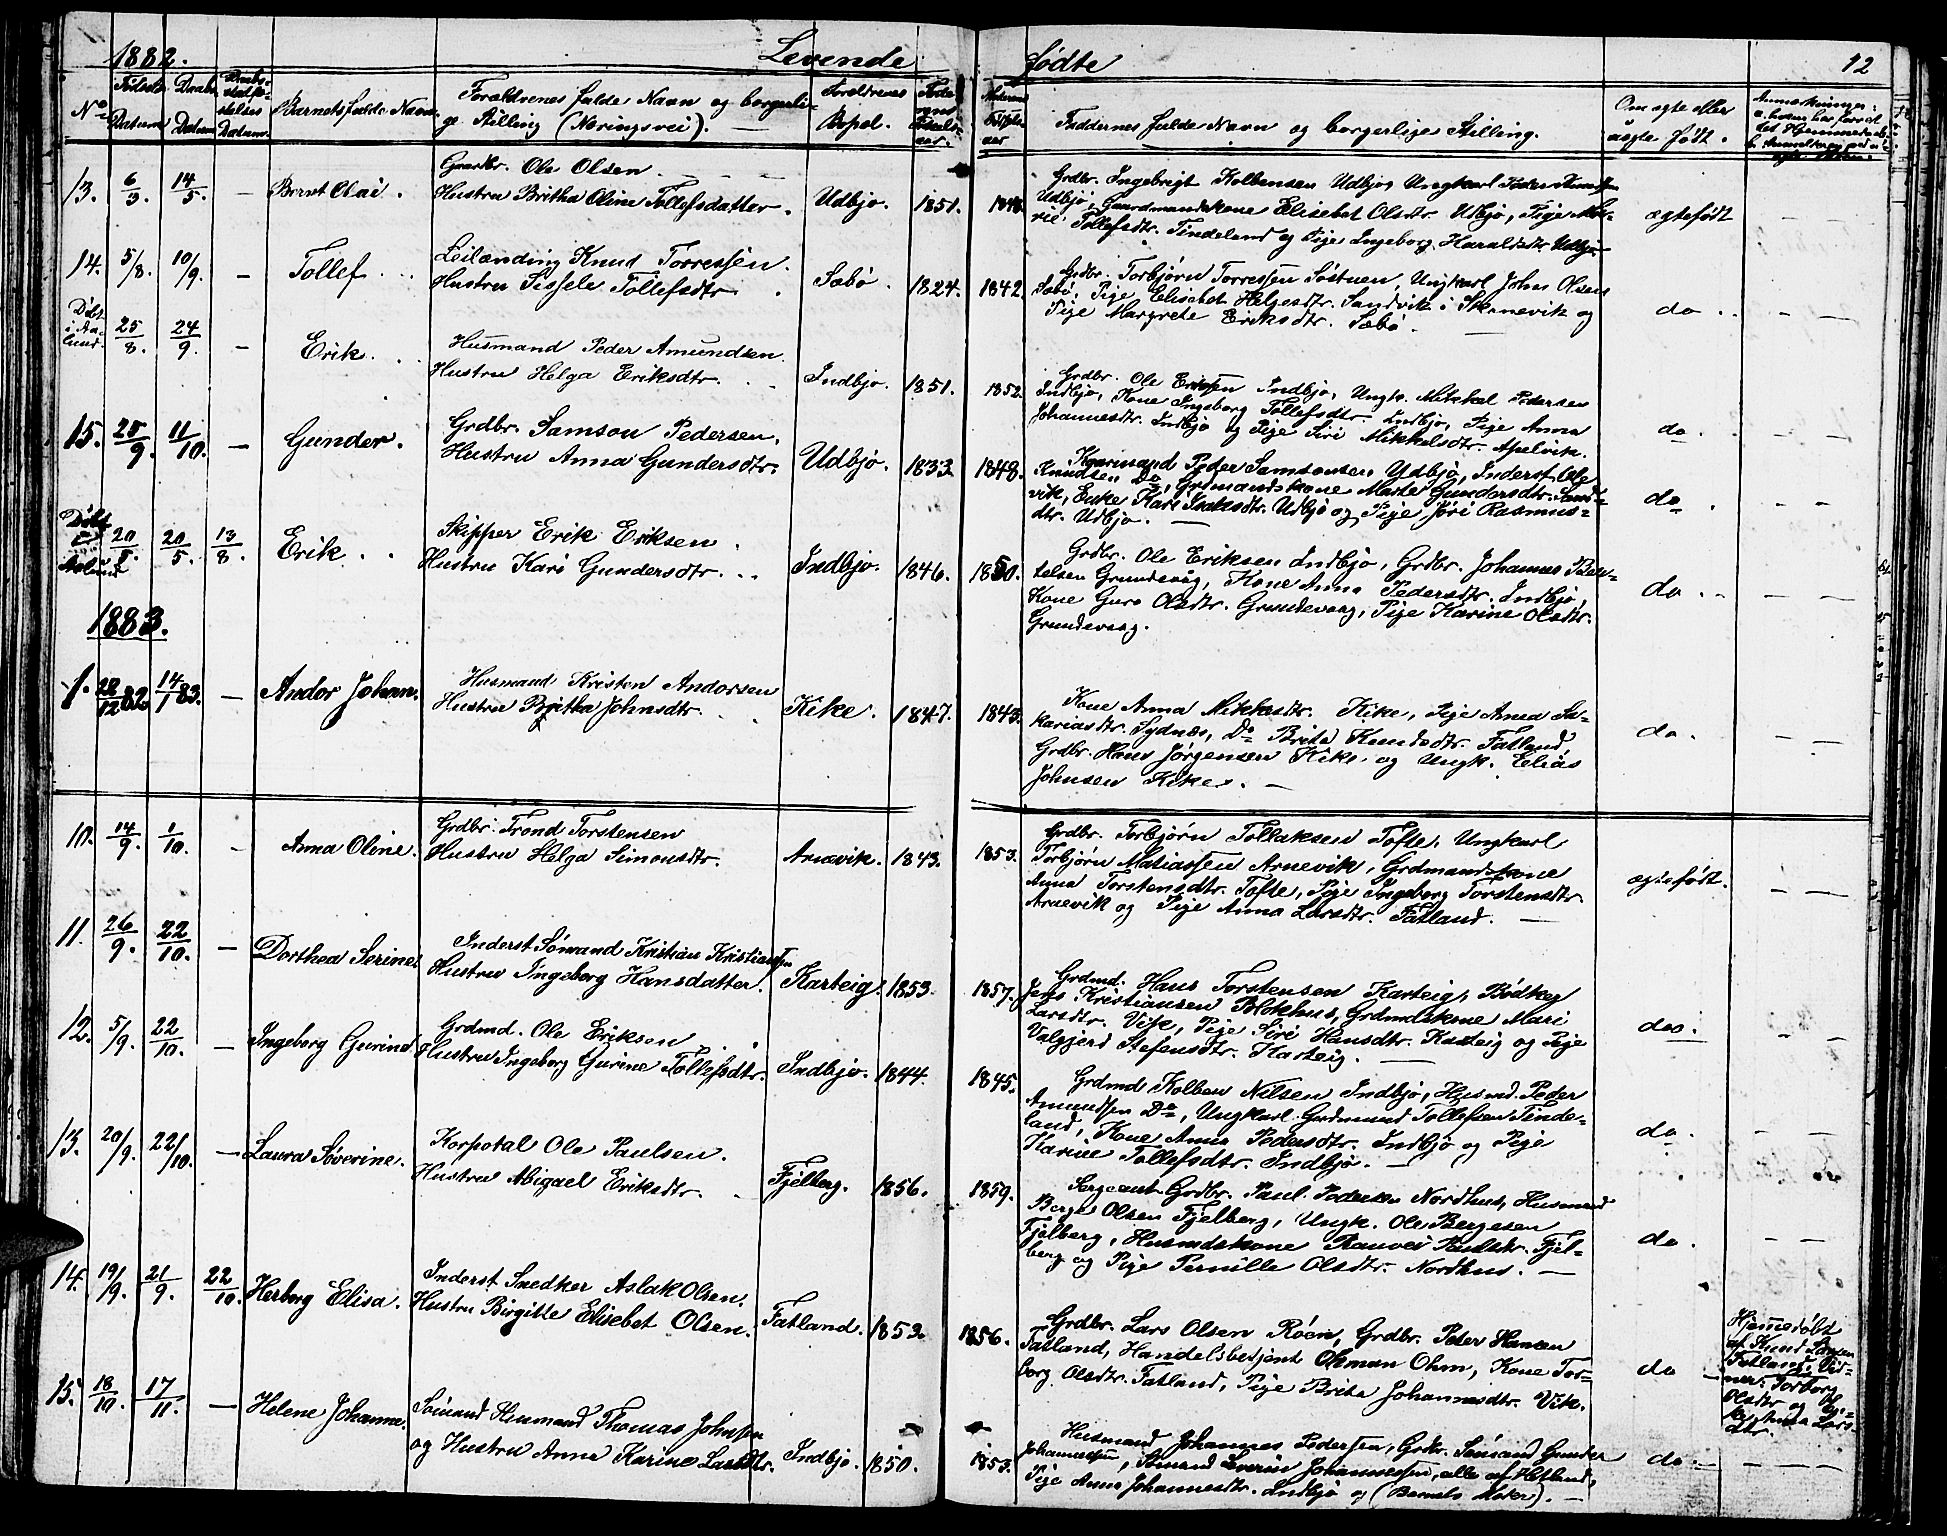 1882. Levende fødte 12
No Fødsels Datum Daabs Datum Daabs- stadfæ- stelses Datum. Barnets fulde Navn. Forældrenes fulde Navn og borgerli-
ge Stilling (Næringsvei). — Forældrenes Bopæl. Faderens Fødsels- aar. Moderens Fødsels- aar Faddernes fulde Navn og borgerlige Stilling. Om ægte eller uægte født. Anmærkninger:
13. 6/3. 14/5. — Bernt Olai. Gaardbr. Ole Olsen
Hustru Britha Oline Tollefsdatter. Udbjo. 1851. 1848.
Grdbr. Ingebrigt Kolbensen Udbjo, Ungkarl Peder
Udbjo, Gaardmandskone Elisebet Olsdtr. Udbjo, Pige Ma-
rie Tollefsdtr. Tindeland og Pige Ingeborg Haraldsdtr. Udbjo
ægtefødt — —
14. 5/8. 10/9. — Tollef Leilænding Knud Torressen.
Hustru Sissele Tollefsdtr. Sæbø. 1824. 1842.
Grdbr. Torbjørn Torressen Søstuen, Ungkarl John Olsen
Sæbø, Pige Elisebet Helgesdtr. Sandvik i Skonevik og
Pige Margrete Eriksdtr. Sæbø.
do — —
Døbt i Aa- lund. 25/8. 24/9. — Erik. Husmand Peder Amundsen.
Hustru Helga Eriksdtr. Indbjo. 1851. 1852.
Grdbr. Ole Eriksen Indbjo, Ungk. Mikkel Pedersen
Indbjo, Kone Ingeborg Tollefsdtr. Indbjo, Pige Anna
Johannesdtr. Indbjo og Pige Siri Mikkelsdtr. Apelvik.
do. — —
15. 25/9. 11/10. — Gunder. Grdbr. Samson Pedersen.
Hustru Anna Gundersdtr. Udbjo. 1833. 1848.
Kaarmand Peder Samsonsen Udbjo, Inderst Ole
Knudsen Do, Grdmandskone Marte Gundersdtr. Sand-
vik, Enke Kari Isaksdtr. Udbjo og Pige Jori Rasmus-
dtr. Udbjo. —
do — —
Døbt i Aalund 20/5. 20/5. 13/8. Erik. Skipper Erik Eriksen.
Hustru Kari Gundersdtr. Indbjo. 1846. 1850.
Grdbr. Ole Eriksen Indbjo, Grdbr. Johannes Ber-
telsen Grundevåg, Kone Anna Pedersdtr. Indbjo,
Kone Guro Olsdtr. Grundevaag, Pige Karine Olsdtr.
Grundevaag.
do — —
1883.
1. 28/12 82 14/1 83. — Andor Johan. Husmand Kristen Andorsen
Hustru Britha Johnsdtr. Kike. 1847. 1843.
Kone Anna Mikkelsdtr. Kike, Pige Anna Sa-
kariasdtr. Sydnæs, Do Brita Knudsdtr. Fatland,
Grdbr. Hans Jørgensen Kike og Ungk. Elias
Johnsen Kike. —
do. — —
10. 14/9. 1/10. — Anna Oline. Grdbr. Trond Torstensen
Hustru Helga Simonsdtr. Arnevik. 1843. 1853.
Grdbr. Torbjørn Tollaksen Tofte, Ungkarl
Torbjørn Matiassen Arnevik, Grdmandskone
Anna Torstensdtr. Tofte, Pige Ingeborg Torstensdtr.
Arnevik og Pige Anna Larsdtr. Fatland. —
ægtefødt. — —
11. 26/9. 22/10. — Dorthea Serine. Inderst Sømand Kristian Kristiansen
Hustru Ingeborg Hansdatter. Karteig. 1853. 1857.
Grdmd. Hans Torstensen Karteig, Bødker
Jens Kristiansen Blokhus, Grdmdskone Mari
Larsdtr. Vik, Pige Siri Hansdtr. Karteig og Pige
Valgjerd Stefensdtr. Karteig. —
do. — —
12. 5/9. 22/10. — Ingeborg Gurine Grdmd. Ole Eriksen
Hustru Ingeborg Gurine Tollefsdtr. Indbjo. 1844. 1845.
Grdmd Kolben Nilsen Indbjo, Husmd. Peder
Amundsen Do, Ungkarl Gudmund Tollefsen Tinde-
land, Kone Anna Pedersdtr. Indbjo og Pige
Karine Tollefsdtr. Indbjo. —
do. — —
13. 20/9. 22/10. — Laura Søverine. Korporal Ole Paulsen.
Hustru Abigael Eriksdtr. Fjelberg. 1856. 1859.
Sergeant Grdbr. Paul Pedersen Nordhus, Husmand
Berge Olsen Fjelberg, Ungk. Ole Bergesen
Fjelberg, Husmdskone Ranvei Paulsdtr. Fjel-
berg og Pige Pernille Olsdtr. Nordhus. —
do. — —
14. 19/9. 21/9. 22/10. Herborg Elisa. Inderst Snedker Aslak Olsen.
Hustru Birgitte Elisebet Olsen. Fatland. 1853. 1856.
Grdbr. Lars Olsen Røen, Grdbr. Peder Hansen
Fatland, Handelsbetjent Ohman Ohm, Kone Tor-
borg Olsdtr. Fatland, Pige Brita Johannesdtr. Vik.
do —
Hjemmedøbt
af Knud Larsen
Fatland, Vid-
ner: Torborg
Olsdtr og
Larsdtr.
15. 18/10. 17/11. — Helene Johanne. Sømand Husmand Thomas Johnsen
og Hustru Anna Karine Larsdtr. Indbjo. 1850. 1853.
Husmand Johannes Pedersen, Grdbr. Sømand Gunder
Johannessen, Sømand Severin Johannessen, alle af Hetland,
Pige Anna Johannesdtr. Indbjo og (Barnets Moder). —
do. — —